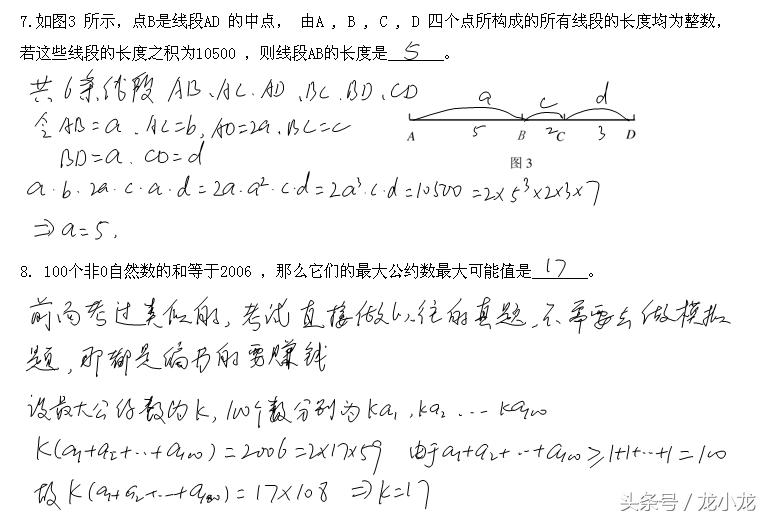 7.如图3 所示，点B是线段AD 的中点， 由A ，B ，C ，D 四个点所构成的所有线段的长度均为整数，
若这些线段的长度之积为10500 ，则线段AB的长度是 5 。
共6条线段 AB、AC、AD、BC、BD、CD
令AB=a、AC=b,AD=2a、BC=c
BD=a、CD=d
a c d
A 5 B 2 C 3 D
图 3
a·b·2a·c·a·d=2a·a²·c·d=2a³·c·d=10500=2×5³×2×3×7
⇒a=5.
8. 100个非0自然数的和等于2006 ，那么它们的最大公约数最大可能值是 17 。
前面考过类似的,考试直接做以往的真题,不需要去做模拟
题,那都是编书的要赚钱
设最大公约数为K,100个数分别为Ka₁,Ka₂…Ka₁₀₀
K(a₁+a₂+…+a₁₀₀)=2006=2×17×59 由于a₁+a₂+…+a₁₀₀≥1+1+…+1=100
故K(a₁+a₂+…+a₁₀₀)=17×108 ⇒K=17
头条号 / 龙小龙